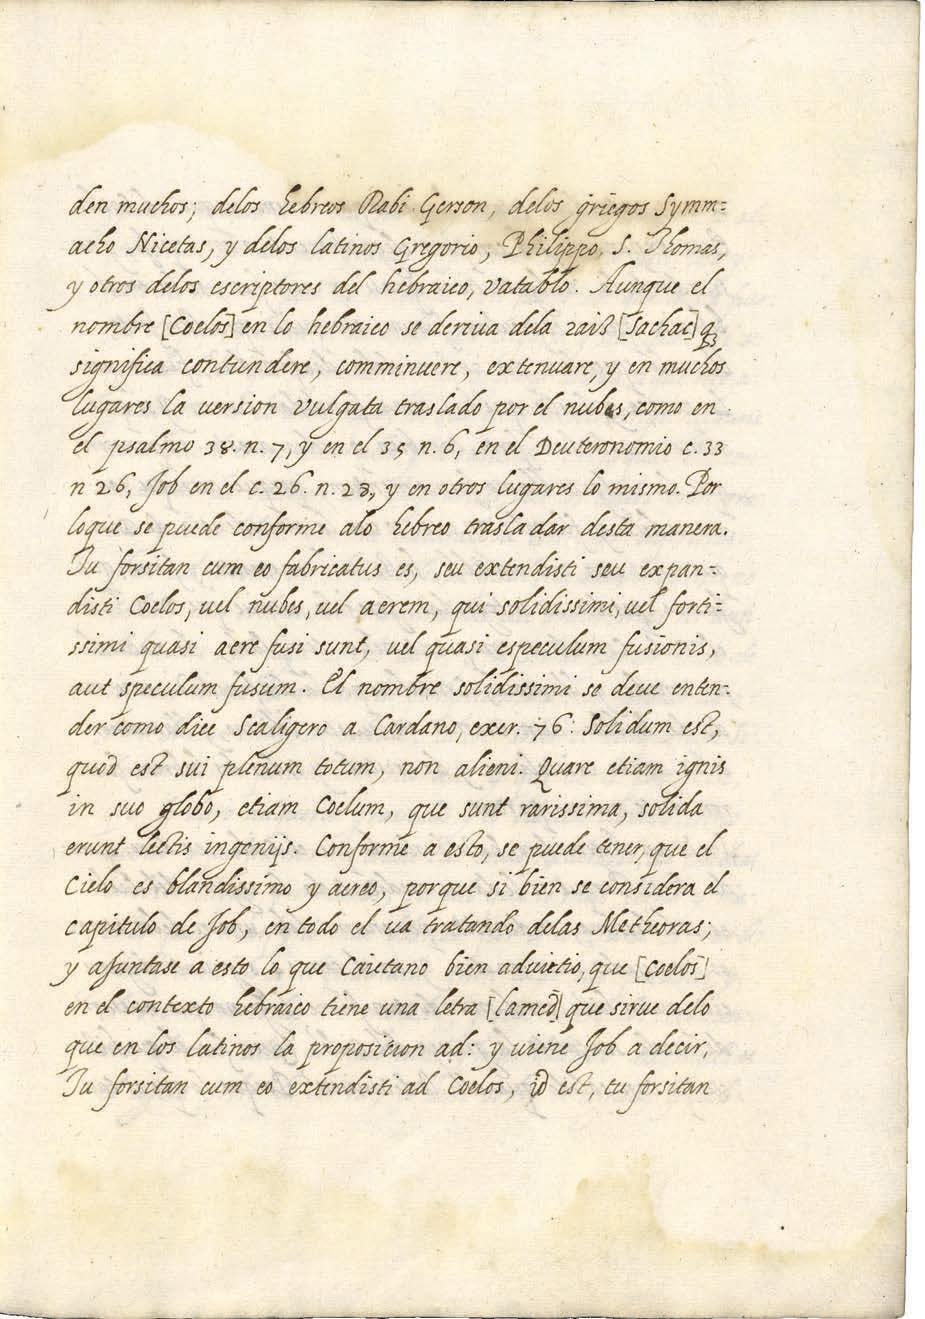 den muchos; delos hebreos Rabi Gerson, delos griegos Symm=
acho Nicetas, y delos latinos Gregorio, Philippo, S. Thomas,
y otros delos escriptores del hebraico, Vatablo. Aunque el
nombre [Coelos] en lo hebraico se deriua dela raiz [Sachac] q
significa contundere, comminuere, extenuare, y en muchos
lugares la uersion Vulgata traslado por el nubes, como en
el psalmo 38. n. 7, y en el 35 n. 6, en el Deuteronomio c. 33
n 26, Job en el c. 26. n. 28, y en otros lugares lo mismo. Por
loque se puede conforme alo hebreo trasladar desta manera.
Tu forsitan cum eo fabricatus es, seu extendisti seu expan=
disti Coelos, uel nubes, uel aerem, qui solidissimi, uel forti=
ssimi quasi aere fusi sunt, uel quasi especulum fusionis,
aut speculum fusum. El nombre solidissimi se deue enten=
der como dice Scaligero a Cardano, exer. 76: Solidum est,
quod est sui plenum totum, non alieni. Quare etiam ignis
in suo globo, etiam Coelum, que sunt rarissima, solida
erunt lectis ingenijs. Conforme a esto, se puede tener, que el
Cielo es blandissimo y aereo, porque si bien se considera el
capitulo de Job, en todo el ua tratando delas Metheoras;
y ajuntase a esto lo que Caietano bien aduietio, que [Coelos]
en el contexto hebraico tiene una letra [lamed] que sirue delo
que en los latinos la proposicion ad: y uiene Job a decir,
Tu forsitan cum eo extendisti ad Coelos, id est, tu forsitan